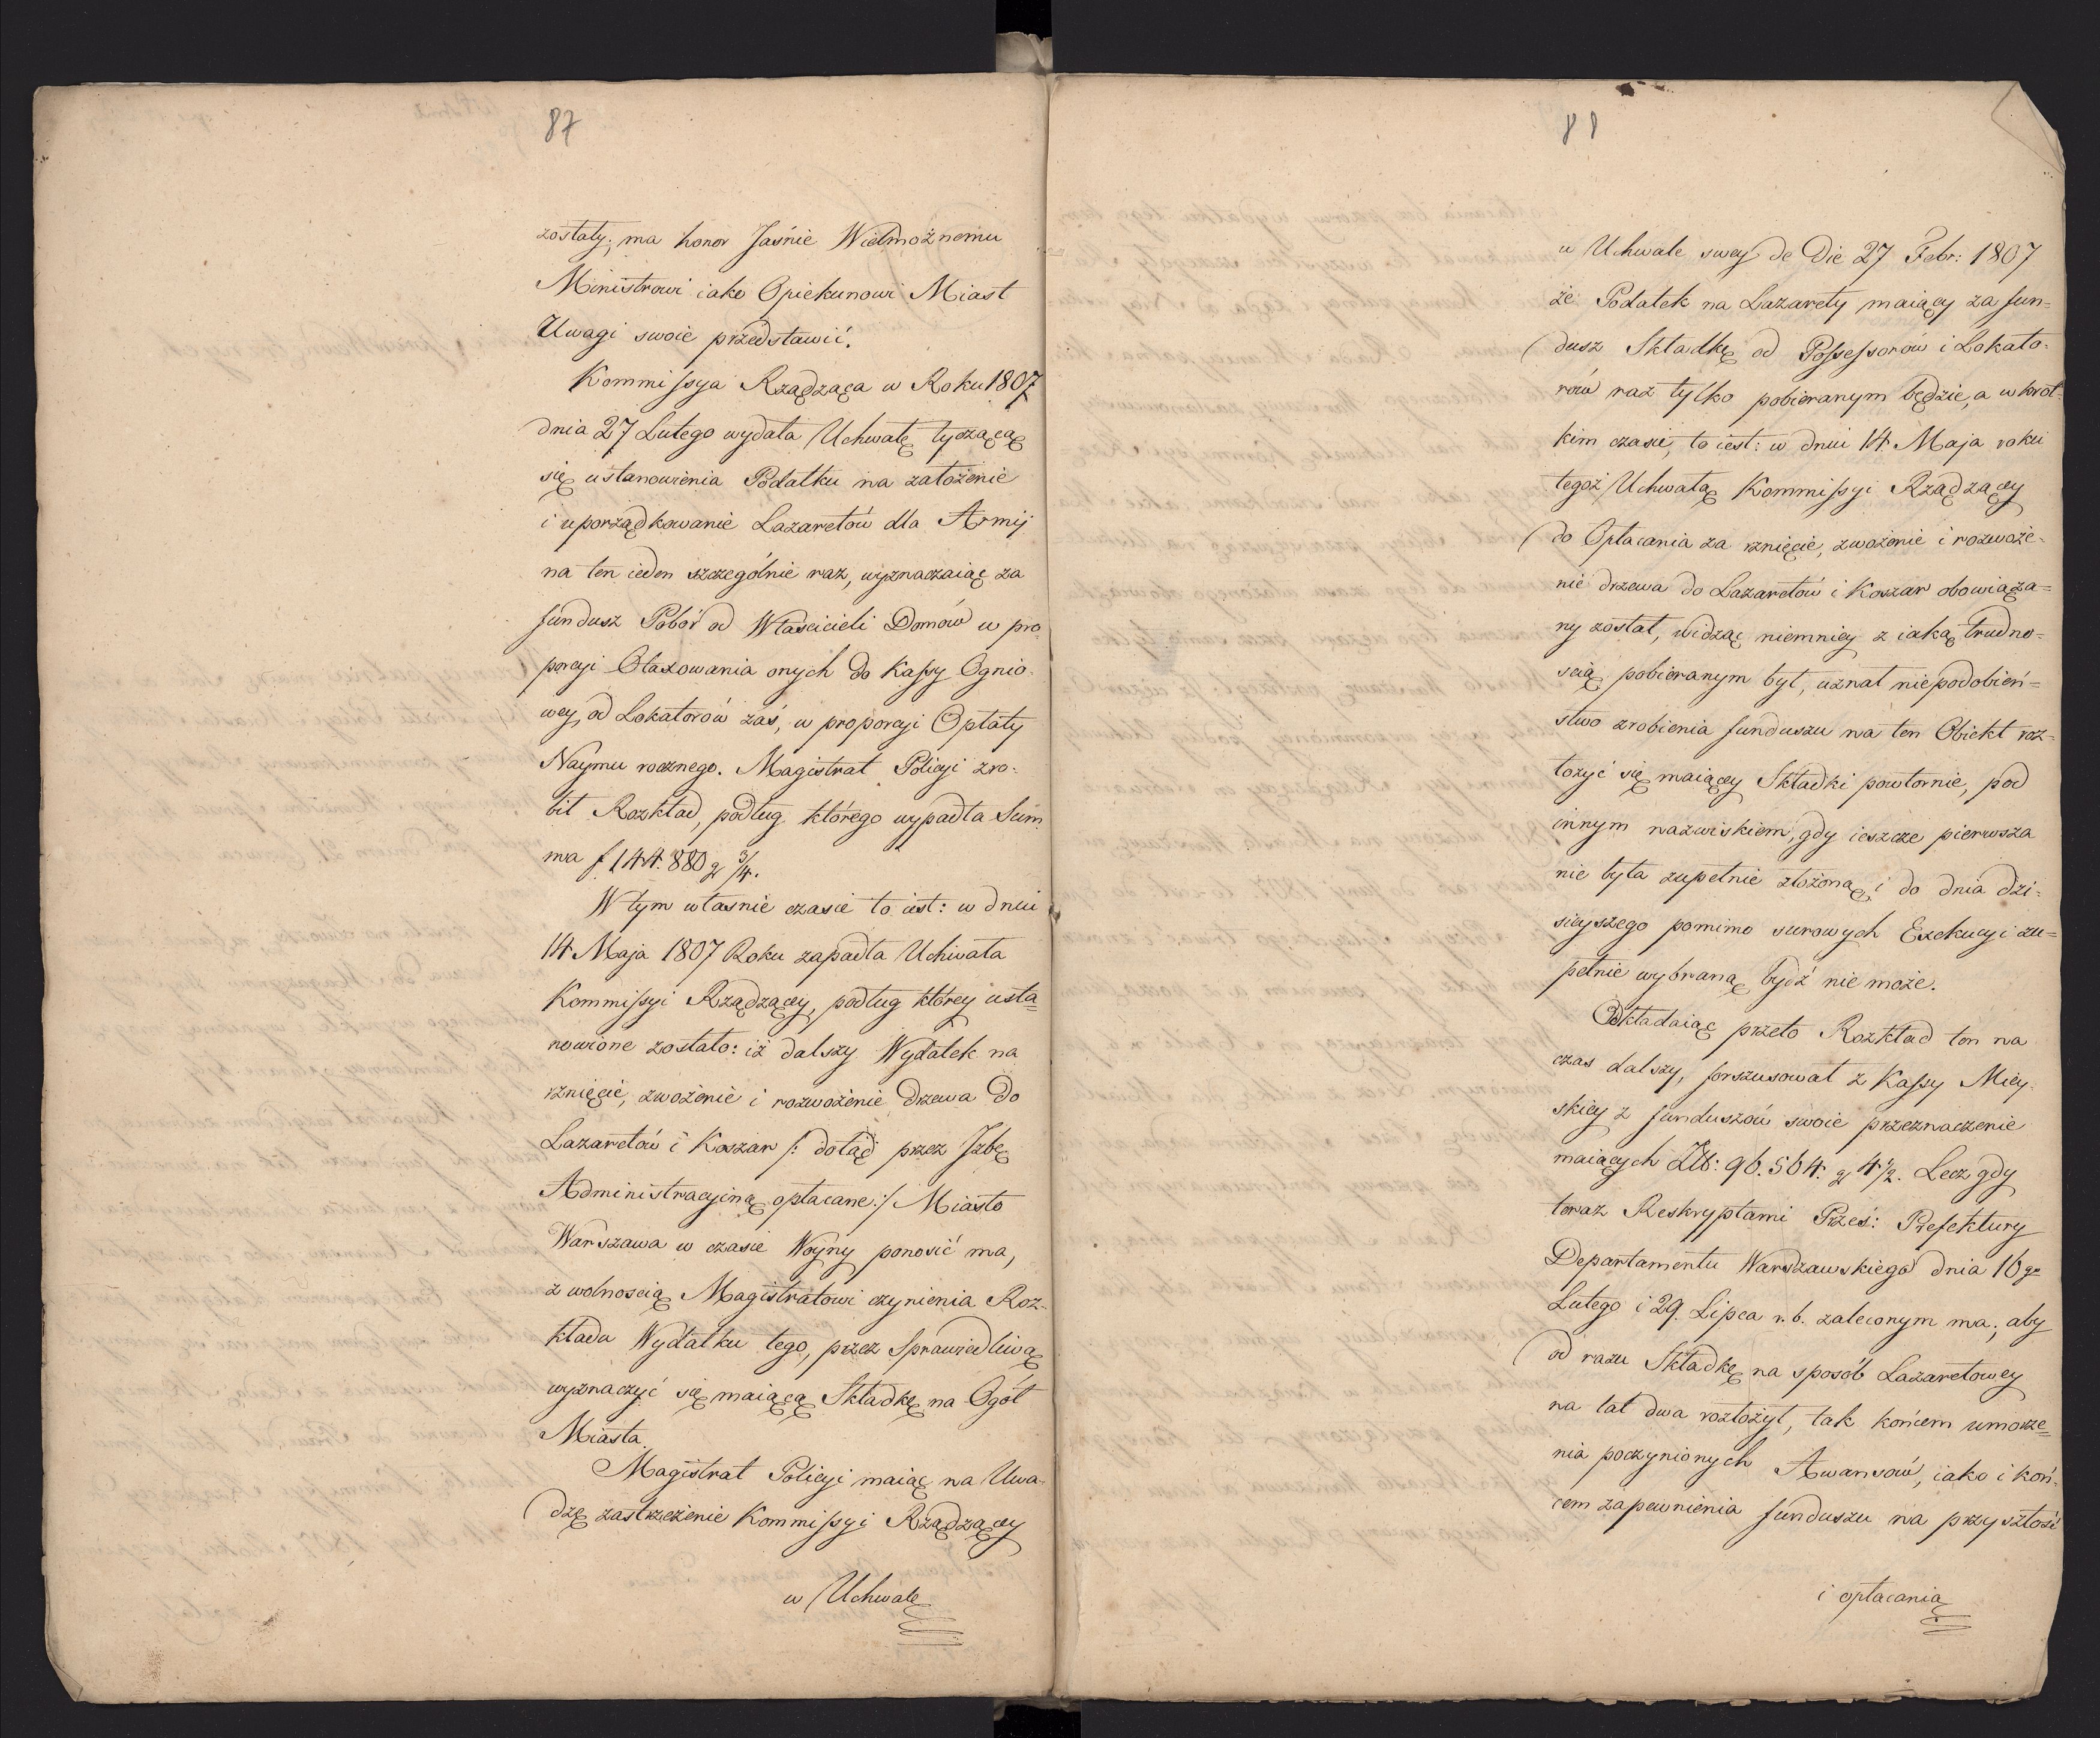 87
zostały; ma honor Jaśnie Wielmożnemu
Ministrowi iako Opiekunowi Miast
Uwagi swoie przedstawić.
Kommissya Rządząca w Roku 1807
dnia 27 Lutego wydała Uchwałę tyczącą
się ustanowienia Podatku na założenie
i uporządkowanie Lazaretów dla Armij
na ten ieden szczególnie raz, wyznaczaiąc za
fundusz Pobór od Właścicieli Domów w pro-
porcyi Otaxowania onych do Kassy Ognio-
wey, od Lokatorów zaś, w proporcyi Opłaty
Naymu rocznego. Magistrat Policyi zro-
bił Rozkład, podług którego wypadła Sum
ma f 144.880 gr 3/4.
W tym własnie czasie to iest: w dniu
14 Maja 1807 Roku zapadła Uchwała
Kommissyi Rządzącey, podług którey usta=
nowione zostało: iż dalszy Wydatek na
rznięcie, zwożenie i rozwożenie drzewa do
Lazaretów i Koszar /: dotąd przez Izbę
Administracyiną opłacane :/ Miasto
Warszawa w czasie Woyny ponosić ma,
z wolnoscią Magistratowi czynienia Roz-
kładu Wydatku tego, przez sprawiedliwą
wyznaczyć się maiącą Składkę na Ogół
Miasta.
Magistrat Policyi maiąc na Uwa-
dzę zastrzeżenie Kommissyi Rządzącey
w Uchwale
88
w Uchwale swey de Die 27 Febr: 1807
że Podatek na Lazarety maiący za fun=
dusz Składkę od Possessorów i Lokato-
rów raz tylko pobieranym będzie, a w krot-
kim czasie, to iest: w dniu 14 Maja roku
tegoż Uchwałą Kommissyi Rządzącey
do Opłacania za rznięcie, zwożenie i rozwoże-
nie drzewa do Lazaretów i Koszar obowiąza=
ny został, widząc niemniey z iaką trudno=
scią pobieranym był, uznał niepodobień=
stwo zrobienia funduszu na ten Obiekt roz=
łożyć się maiącey Składki powtornie, pod
innym nazwiskiem, gdy ieszcze pierwsza
nie była zupełnie złożoną, i do dnia dzi-
sieyszego pomimo surowych Exekucyi zu=
pełnie wybraną bydź nie może.
Odkładaiąc przeto Rozkład ten na
czas dalszy, forszusował z Kassy Miey-
skiey z funduszów swoie przeznaczenie
maiących Zł: 96.564. gr 4 1/2. Lecz gdy
teraz Reskryptami Prześ: Prefektury
Departamentu Warszawskiego dnia 16go
Lutego i 29. Lipca r. b. zaleconym ma, aby
od razu Składkę na sposób Lazaretowey
na lat dwa rozłożył, tak końcem umorze=
nia poczynionych Awansów, iako i koń-
cem zapewnienia funduszu na przyszłość
i opłacania